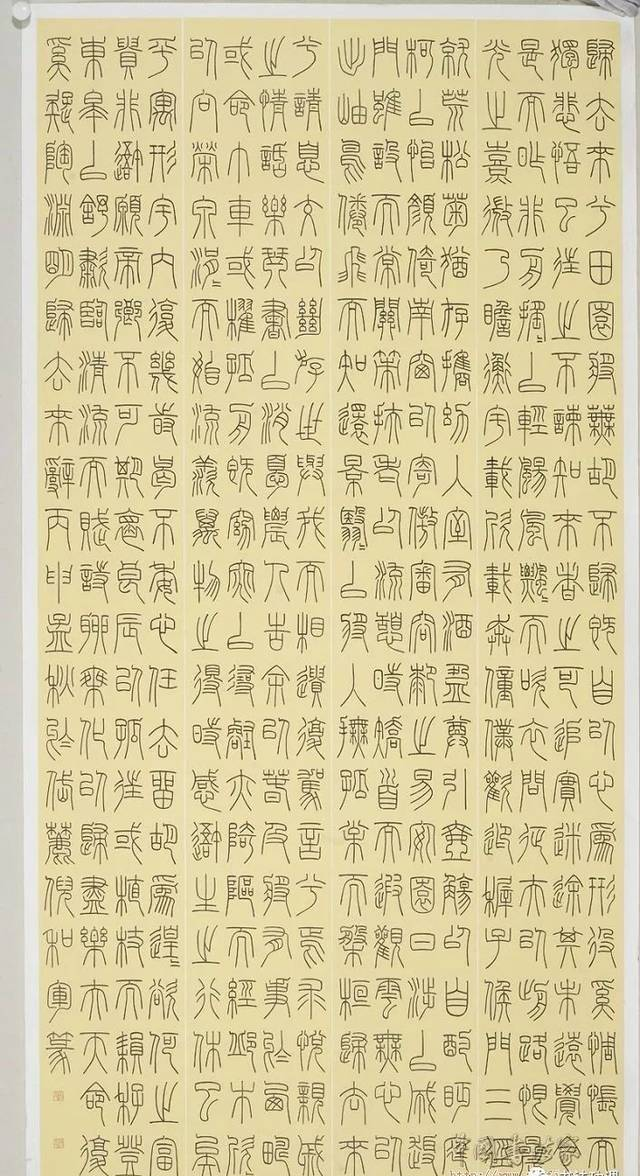 歸去來兮田園將蕪胡不歸既自以心為形役奚惆悵而
獨悲悟已往之不諫知來者之可追實迷途其未遠覺今
是而昨非舟搖〻以輕颺風飄〻而吹衣問征夫以前路恨晨
光之熹微乃瞻衡宇載欣載奔僮僕歡迎稚子候門三徑
就荒松菊猶存攜幼入室有酒盈尊引壺觴以自酌眄庭
柯以怡顏倚南窗以寄傲審容膝之易安園日涉以成趣
門雖設而常關策扶老以流憩時矯首而遐觀雲無心以
出岫鳥倦飛而知還景翳〻以將入撫孤松而盤桓歸去來
兮請息交以絕游世與我而相遺復駕言兮焉求悅親戚
之情話樂琴書以消憂農人告余以春及將有事於西疇
或命巾車或櫂孤舟既窈窕以尋壑亦崎嶇而經邱木欣〻
以向榮泉涓〻而始流羨萬物之得時感吾生之行休已矣
乎寓形宇內復幾時曷不委心任去留胡為遑〻欲何之富
貴非吾願帝鄉不可期懷良辰以孤往或植杖而耘耔登
東皋以舒嘯臨清流而賦詩聊乘化以歸盡樂夫天命復
奚疑陶淵明歸去來辭丙申孟秋於岱麓倪和軍篆